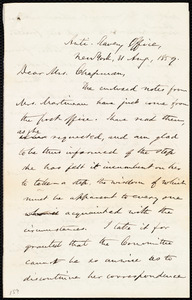 Anti-Slavery Office,
New York, 21 Aug, 1859.
Dear Mrs. Chapman,
The enclosed notes from
Mrs. Martineau have just come from
the post office. I have read them,
as she
requested, and am glad
to be thus informed of the step
she has felt it incumbent on her
to take—a step, the wisdom of which
must be apparent to every one
acquainted with the
circumstances. I take it for
granted that the Committee
cannot be so unwise as to
discontinue her correspondence